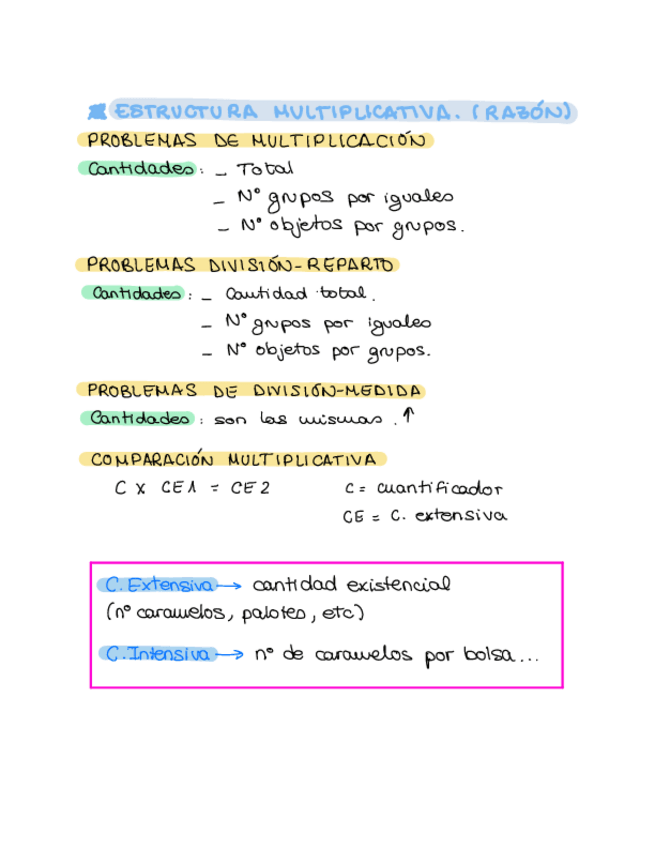 ESTRUCTURA MULTIPLICATIVA. (RAZÓN)
PROBLEMAS DE MULTIPLICACIÓN
Cantidades: - Total
- Nº grupos por iguales
- Nº objetos por grupos.
PROBLEMAS DIVISIÓN-REPARTO
Cantidades: - Cantidad total.
- Nº grupos por iguales
- Nº objetos por grupos.
PROBLEMAS DE DIVISIÓN-MEDIDA
Cantidades: son las mismas. ↑
COMPARACIÓN MULTIPLICATIVA
C x CE1 = CE2 C = cuantificador
CE = C. extensiva
C. Extensiva → cantidad existencial
(nº caramelos, palotes, etc)
C. Intensiva → nº de caramelos por bolsa...